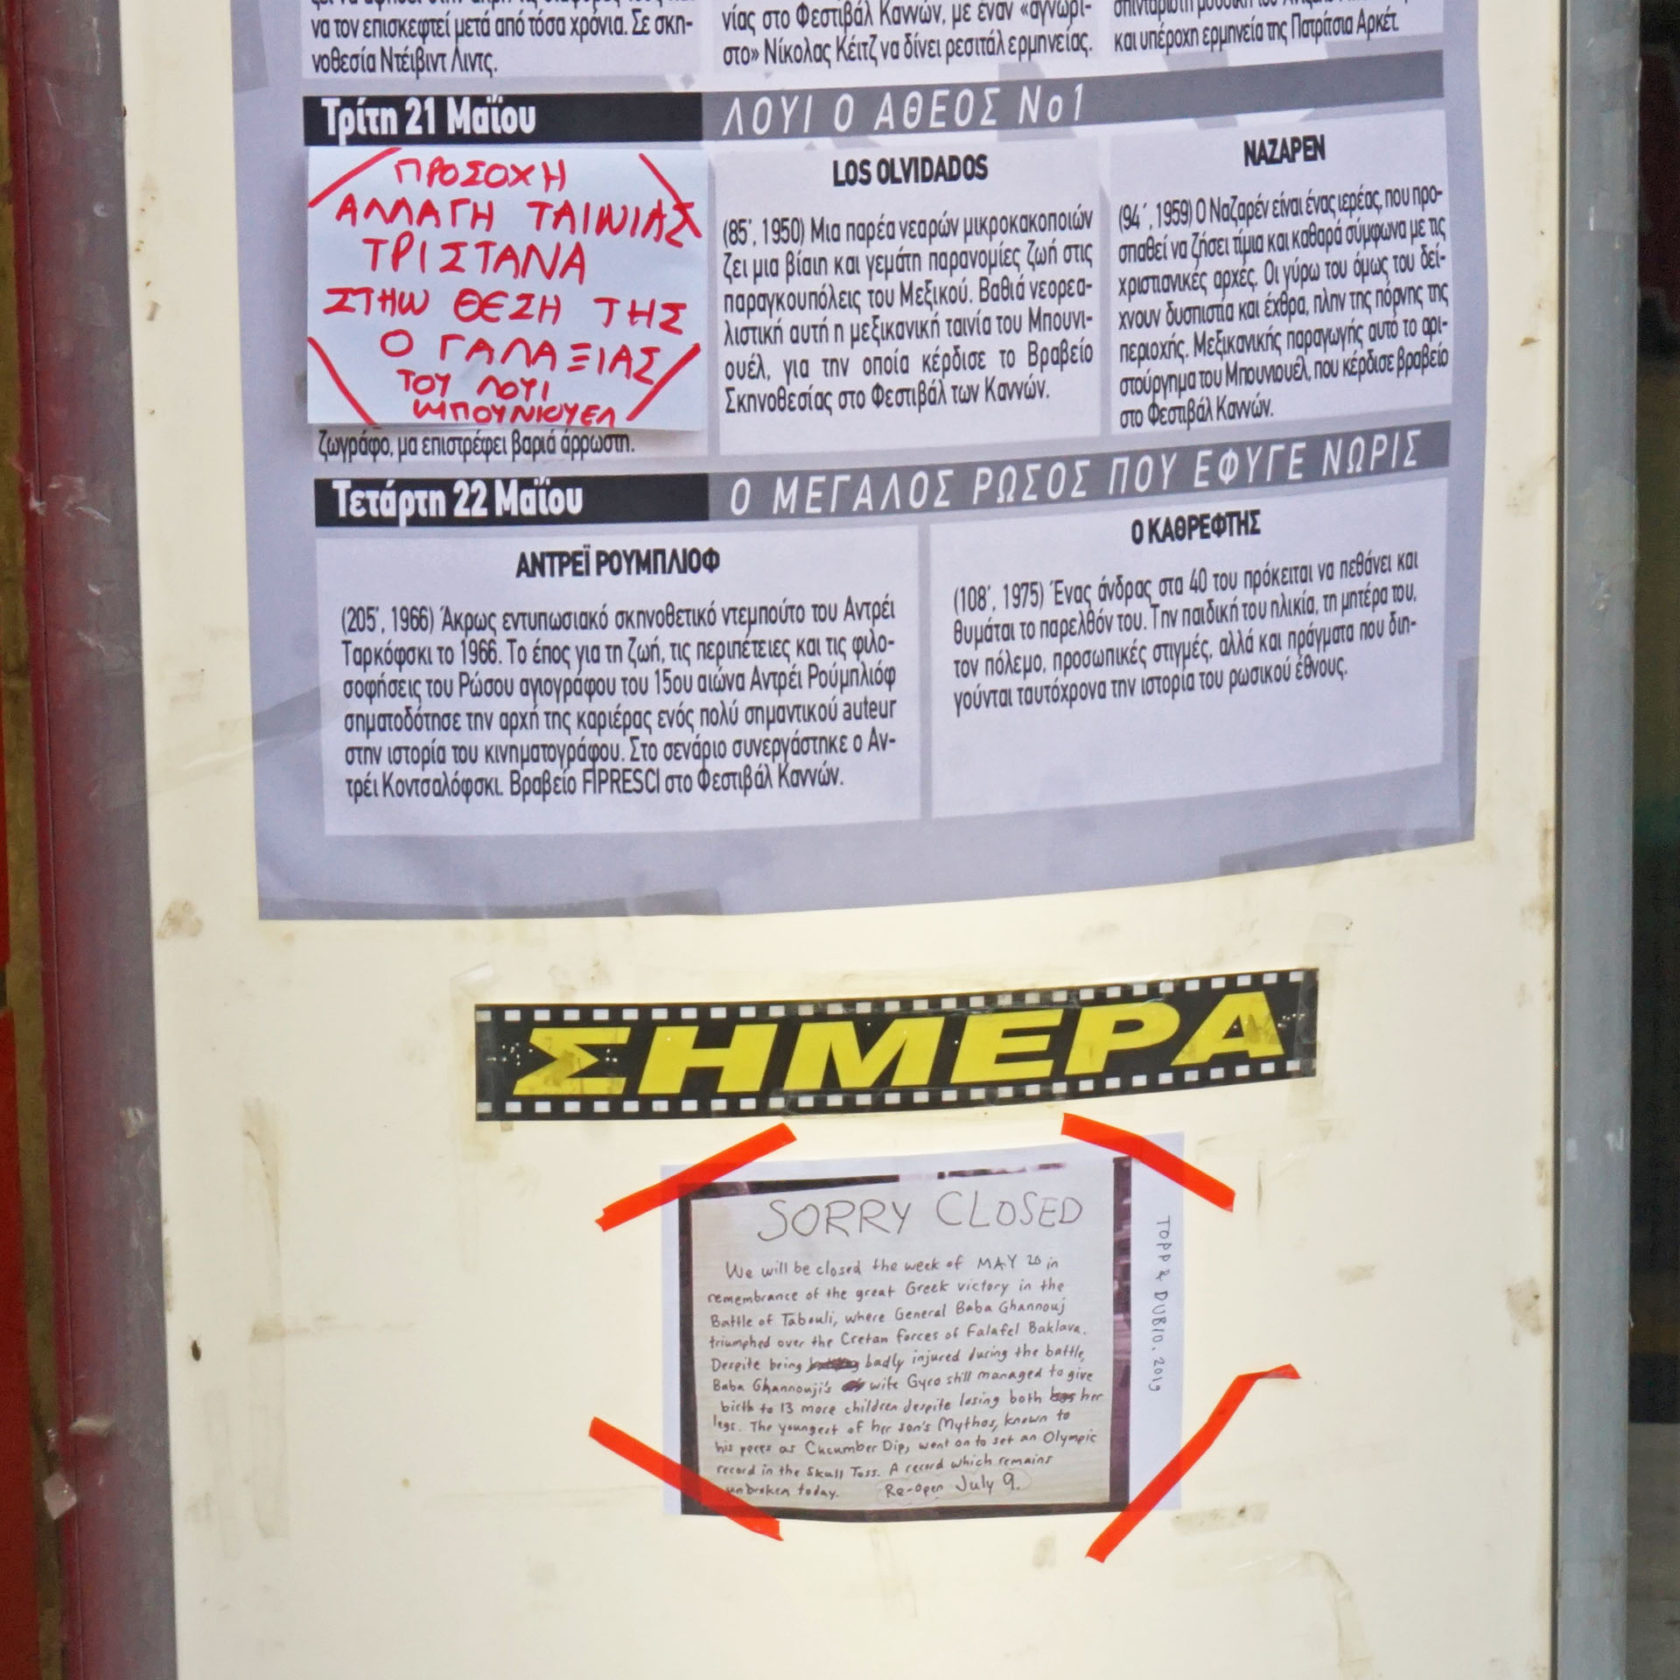 να τον επισκεφτεί μετά από τόσα χρόνια. Σε σκη-
νοθεσία Ντέιβιντ Λιντς.
νίας στο Φεστιβάλ Καννών, με έναν «αγνώρι-
στο» Νίκολας Κέιτζ να δίνει ρεσιτάλ ερμηνείας.
και υπέροχη ερμηνεία της Πατρίτσια Αρκέτ.
Τρίτη 21 Μαΐου
ΛΟΥΙ Ο ΑΘΕΟΣ Νο1
ΠΡΟΣΟΧΗ
ΑΛΛΑΓΗ ΤΑΙΝΙΑΣ
ΤΡΙΣΤΑΝΑ
ΣΤΗΝ ΘΕΣΗ ΤΗΣ
Ο ΓΑΛΑΞΙΑΣ
ΤΟΥ ΛΟΥΙ
ΜΠΟΥΝΙΟΥΕΛ
ζωγράφο, μα επιστρέφει βαριά άρρωστη.
LOS OLVIDADOS
(85΄, 1950) Μια παρέα νεαρών μικροκακοποιών
ζει μια βίαιη και γεμάτη παρανομίες ζωή στις
παραγκουπόλεις του Μεξικού. Βαθιά νεορεα-
λιστική αυτή η μεξικανική ταινία του Μπουνι-
ουέλ, για την οποία κέρδισε το Βραβείο
Σκηνοθεσίας στο Φεστιβάλ των Καννών.
ΝΑΖΑΡΕΝ
(94΄, 1959) Ο Ναζαρέν είναι ένας ιερέας, που προ-
σπαθεί να ζήσει τίμια και καθαρά σύμφωνα με τις
χριστιανικές αρχές. Οι γύρω του όμως του δεί-
χνουν δυσπιστία και έχθρα, πλην της πόρνης της
περιοχής. Μεξικανικής παραγωγής αυτό το αρι-
στούργημα του Μπουνιουέλ, που κέρδισε βραβείο
στο Φεστιβάλ Καννών.
Τετάρτη 22 Μαΐου
Ο ΜΕΓΑΛΟΣ ΡΩΣΟΣ ΠΟΥ ΕΦΥΓΕ ΝΩΡΙΣ
ΑΝΤΡΕΪ ΡΟΥΜΠΛΙΟΦ
(205΄, 1966) Άκρως εντυπωσιακό σκηνοθετικό ντεμπούτο του Αντρέι
Ταρκόφσκι το 1966. Το έπος για τη ζωή, τις περιπέτειες και τις φιλο-
σοφήσεις του Ρώσου αγιογράφου του 15ου αιώνα Αντρέι Ρούμπλιόφ
σηματοδότησε την αρχή της καριέρας ενός πολύ σημαντικού auteur
στην ιστορία του κινηματογράφου. Στο σενάριο συνεργάστηκε ο Αν-
τρέι Κοντσαλόφσκι. Βραβείο FIPRESCI στο Φεστιβάλ Καννών.
Ο ΚΑΘΡΕΦΤΗΣ
(108΄, 1975) Ένας άνδρας στα 40 του πρόκειται να πεθάνει και
θυμάται το παρελθόν του. Την παιδική του ηλικία, τη μητέρα του,
τον πόλεμο, προσωπικές στιγμές, αλλά και πράγματα που διη-
γούνται ταυτόχρονα την ιστορία του ρωσικού έθνους.
ΣΗΜΕΡΑ
SORRY CLOSED
We will be closed the week of MAY 20 in
remembrance of the great Greek victory in the
Battle of Tabouli, where General Baba Ghannouj
triumphed over the Cretan forces of Falafel Baklava.
Despite being badly injured during the battle,
Baba Ghannouji's wife Gyro still managed to give
birth to 13 more children despite losing both her
legs. The youngest of her son's Mythos, known to
his peers as Cucumber Dip, went on to set an Olympic
record in the Skull Toss. A record which remains
unbroken today. Re-open July 9.
TOPP & DUBIO, 2019